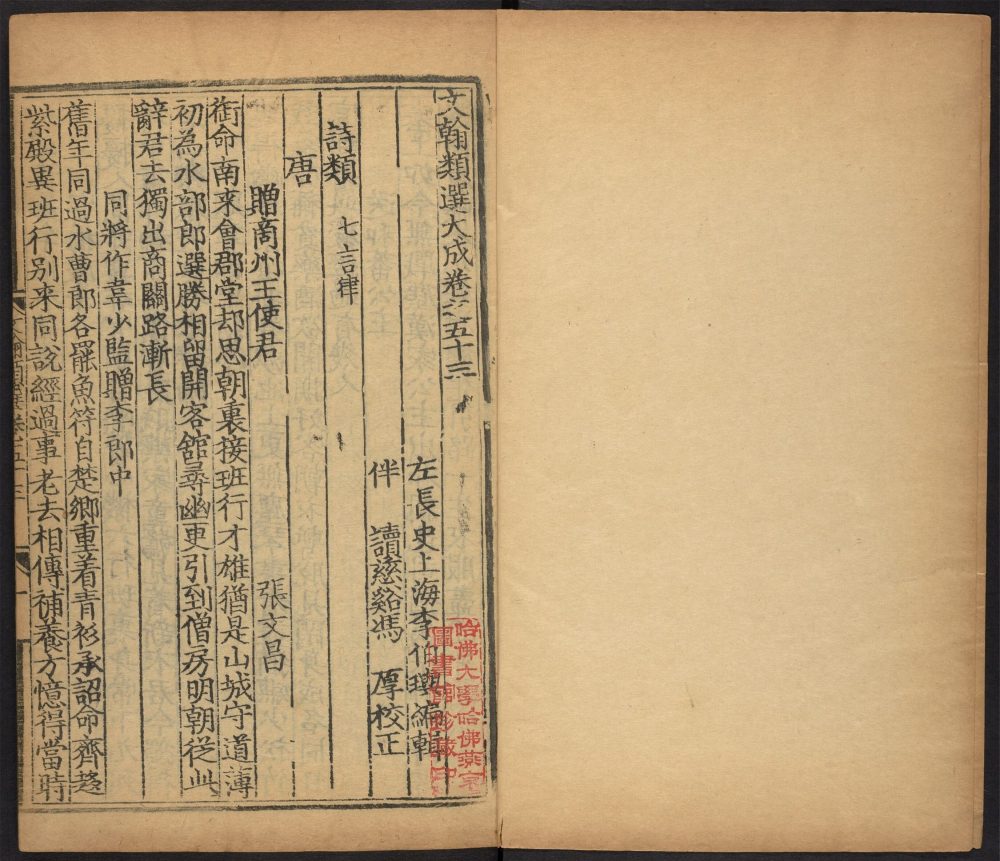 文翰類選大成卷之五十三
左長史上海李伯璵編輯
伴 讀慈谿馮 厚校正
詩類 七言律
唐
贈商州王使君 張文昌
銜命南來會郡堂却思朝裏接班行才雄猶是山城守道薄
初為水部郎選勝相留開客舘尋幽更引到僧房明朝從此
辭君去獨出商關路漸長
同將作韋少監贈李郎中
舊年同過水曹郎各罷魚符自楚鄉重着青衫承詔命齊趍
紫殿異班行別來同說經過事老去相傳補養方憶得當時
哈佛大學哈佛燕京
圖書館珍藏印